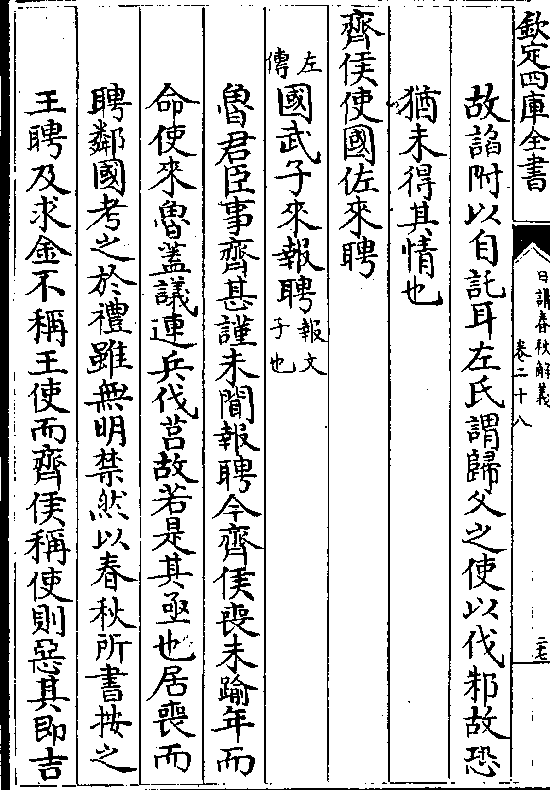 欽定四庫全書
日講春秋解義
卷二十八
二七
故諂附以自託耳左氏謂歸父之使以伐邾故恐
猶未得其情也
齊侯使國佐來聘
左傳國武子來報聘報文子也
魯君臣事齊甚謹未聞報聘今齊侯喪未踰年而
命使來魯蓋議連兵伐莒故若是其亟也居喪而
聘鄰國考之於禮雖無明禁然以春秋所書按之
王聘及求金不稱王使而齊侯稱使則惡其即吉